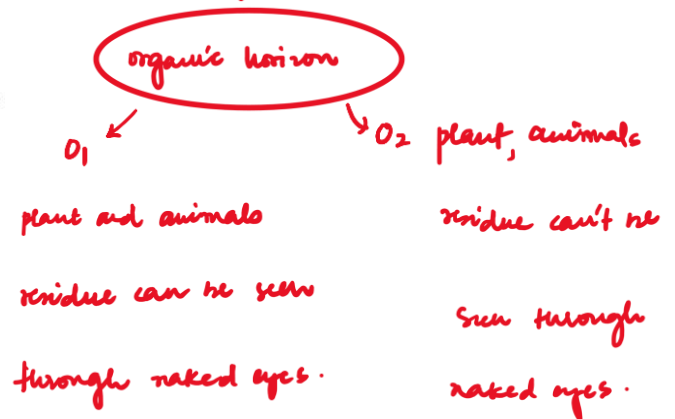 organic horizon
O1
plant and animals
residue can be seen
through naked eyes.
O2 plant, animals
residue can't be
seen through
naked eyes.